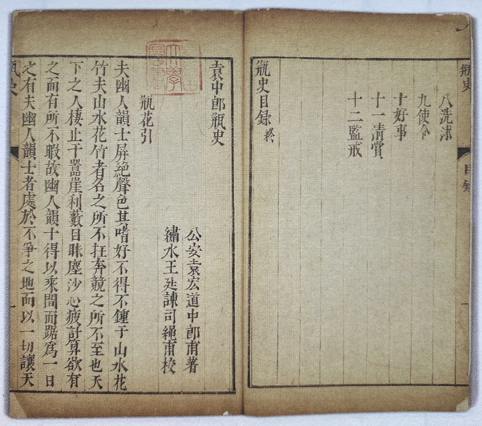 瓶史
目錄
八洗沐
九使令
十好事
十一清賞
十二監戒
瓶史目錄終
袁中郎瓶史
公安袁宏道中郎甫著
繡水王廷諫司繩甫校
瓶花引
夫幽人韻士屏絕聲色其嗜好不得不鍾于山水花
竹夫山水花竹者名之所不在奔競之所不至也天
下之人棲止于囂崖利藪目眯塵沙心疲計算欲有
之而有所不暇故幽人韻士得以乘間而踞為一日
之有夫幽人韻士者處於不爭之地而以一切讓天
瓶史